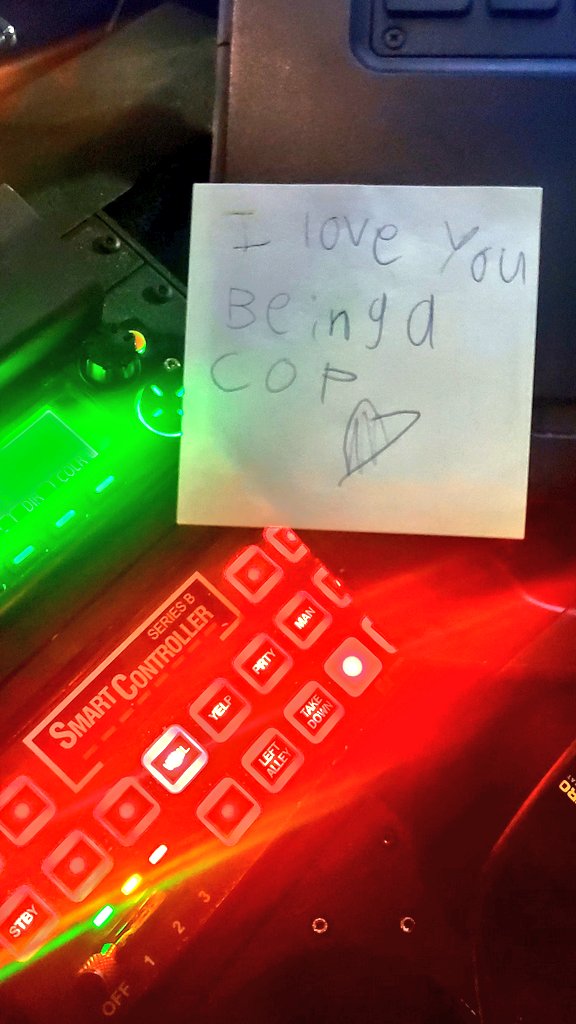 I love You
Being a
COP
DIR
SERIES B
SMART CONTROLLER
MAN
PRTY
YELP
TAKE
DOWN
LEFT
ALLEY
STBY
OFF 1 2 3